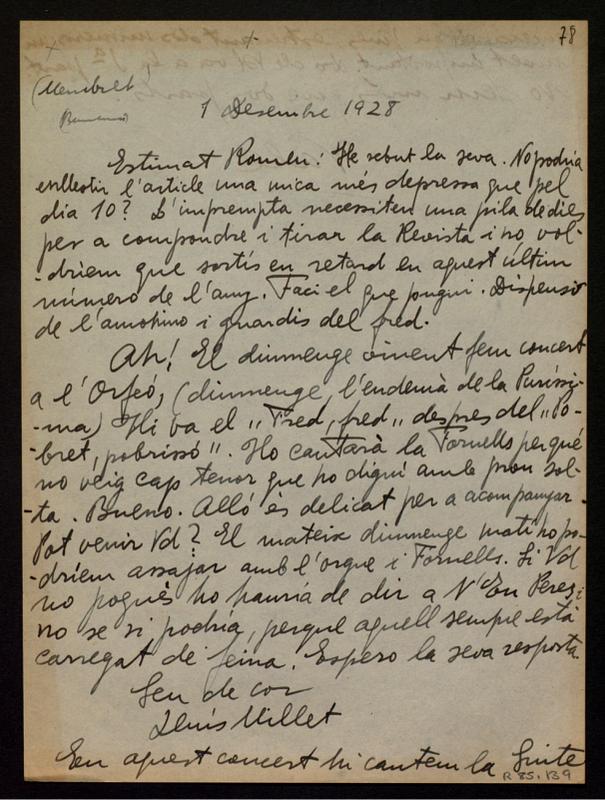 78
(Membret
1 Desembre 1928
Estimat Romeu: He rebut la seva. No podria
enllestir l'article una mica més depressa que pel
dia 10? L'imprempta necessiten una pila de dies
per a compondre i tirar la Revista i no vol-
-driem que sortís en retard en aquest últim
número de l'any. Faci el que pugui. Dispensi
de l'amohino i guardis del fred.
Ah! El diumenge vinent fem concert
a l'Orfeó, (diumenge, l'endemà de la Puríssi-
-ma) Hi va el "Fred, fred" despres del "Po-
-bret, pobrissó". Ho cantarà la Fornells perquè
no veig cap tenor que ho digui amb prou sol-
-ta. Bueno. Alló és delicat per a acompanyar.
Pot venir Vd? El mateix diumenge matí ho po-
-driem assajar amb l'orgue i Fornells. Si Vd
no pogués ho hauria de dir a N'En Perez i
no se si podria, perque aquell sempre està
carregat de feina. Espero la seva resposta.
Seu de cor
Lluís Millet
En aquest concert hi cantem la Suite
R 85.139